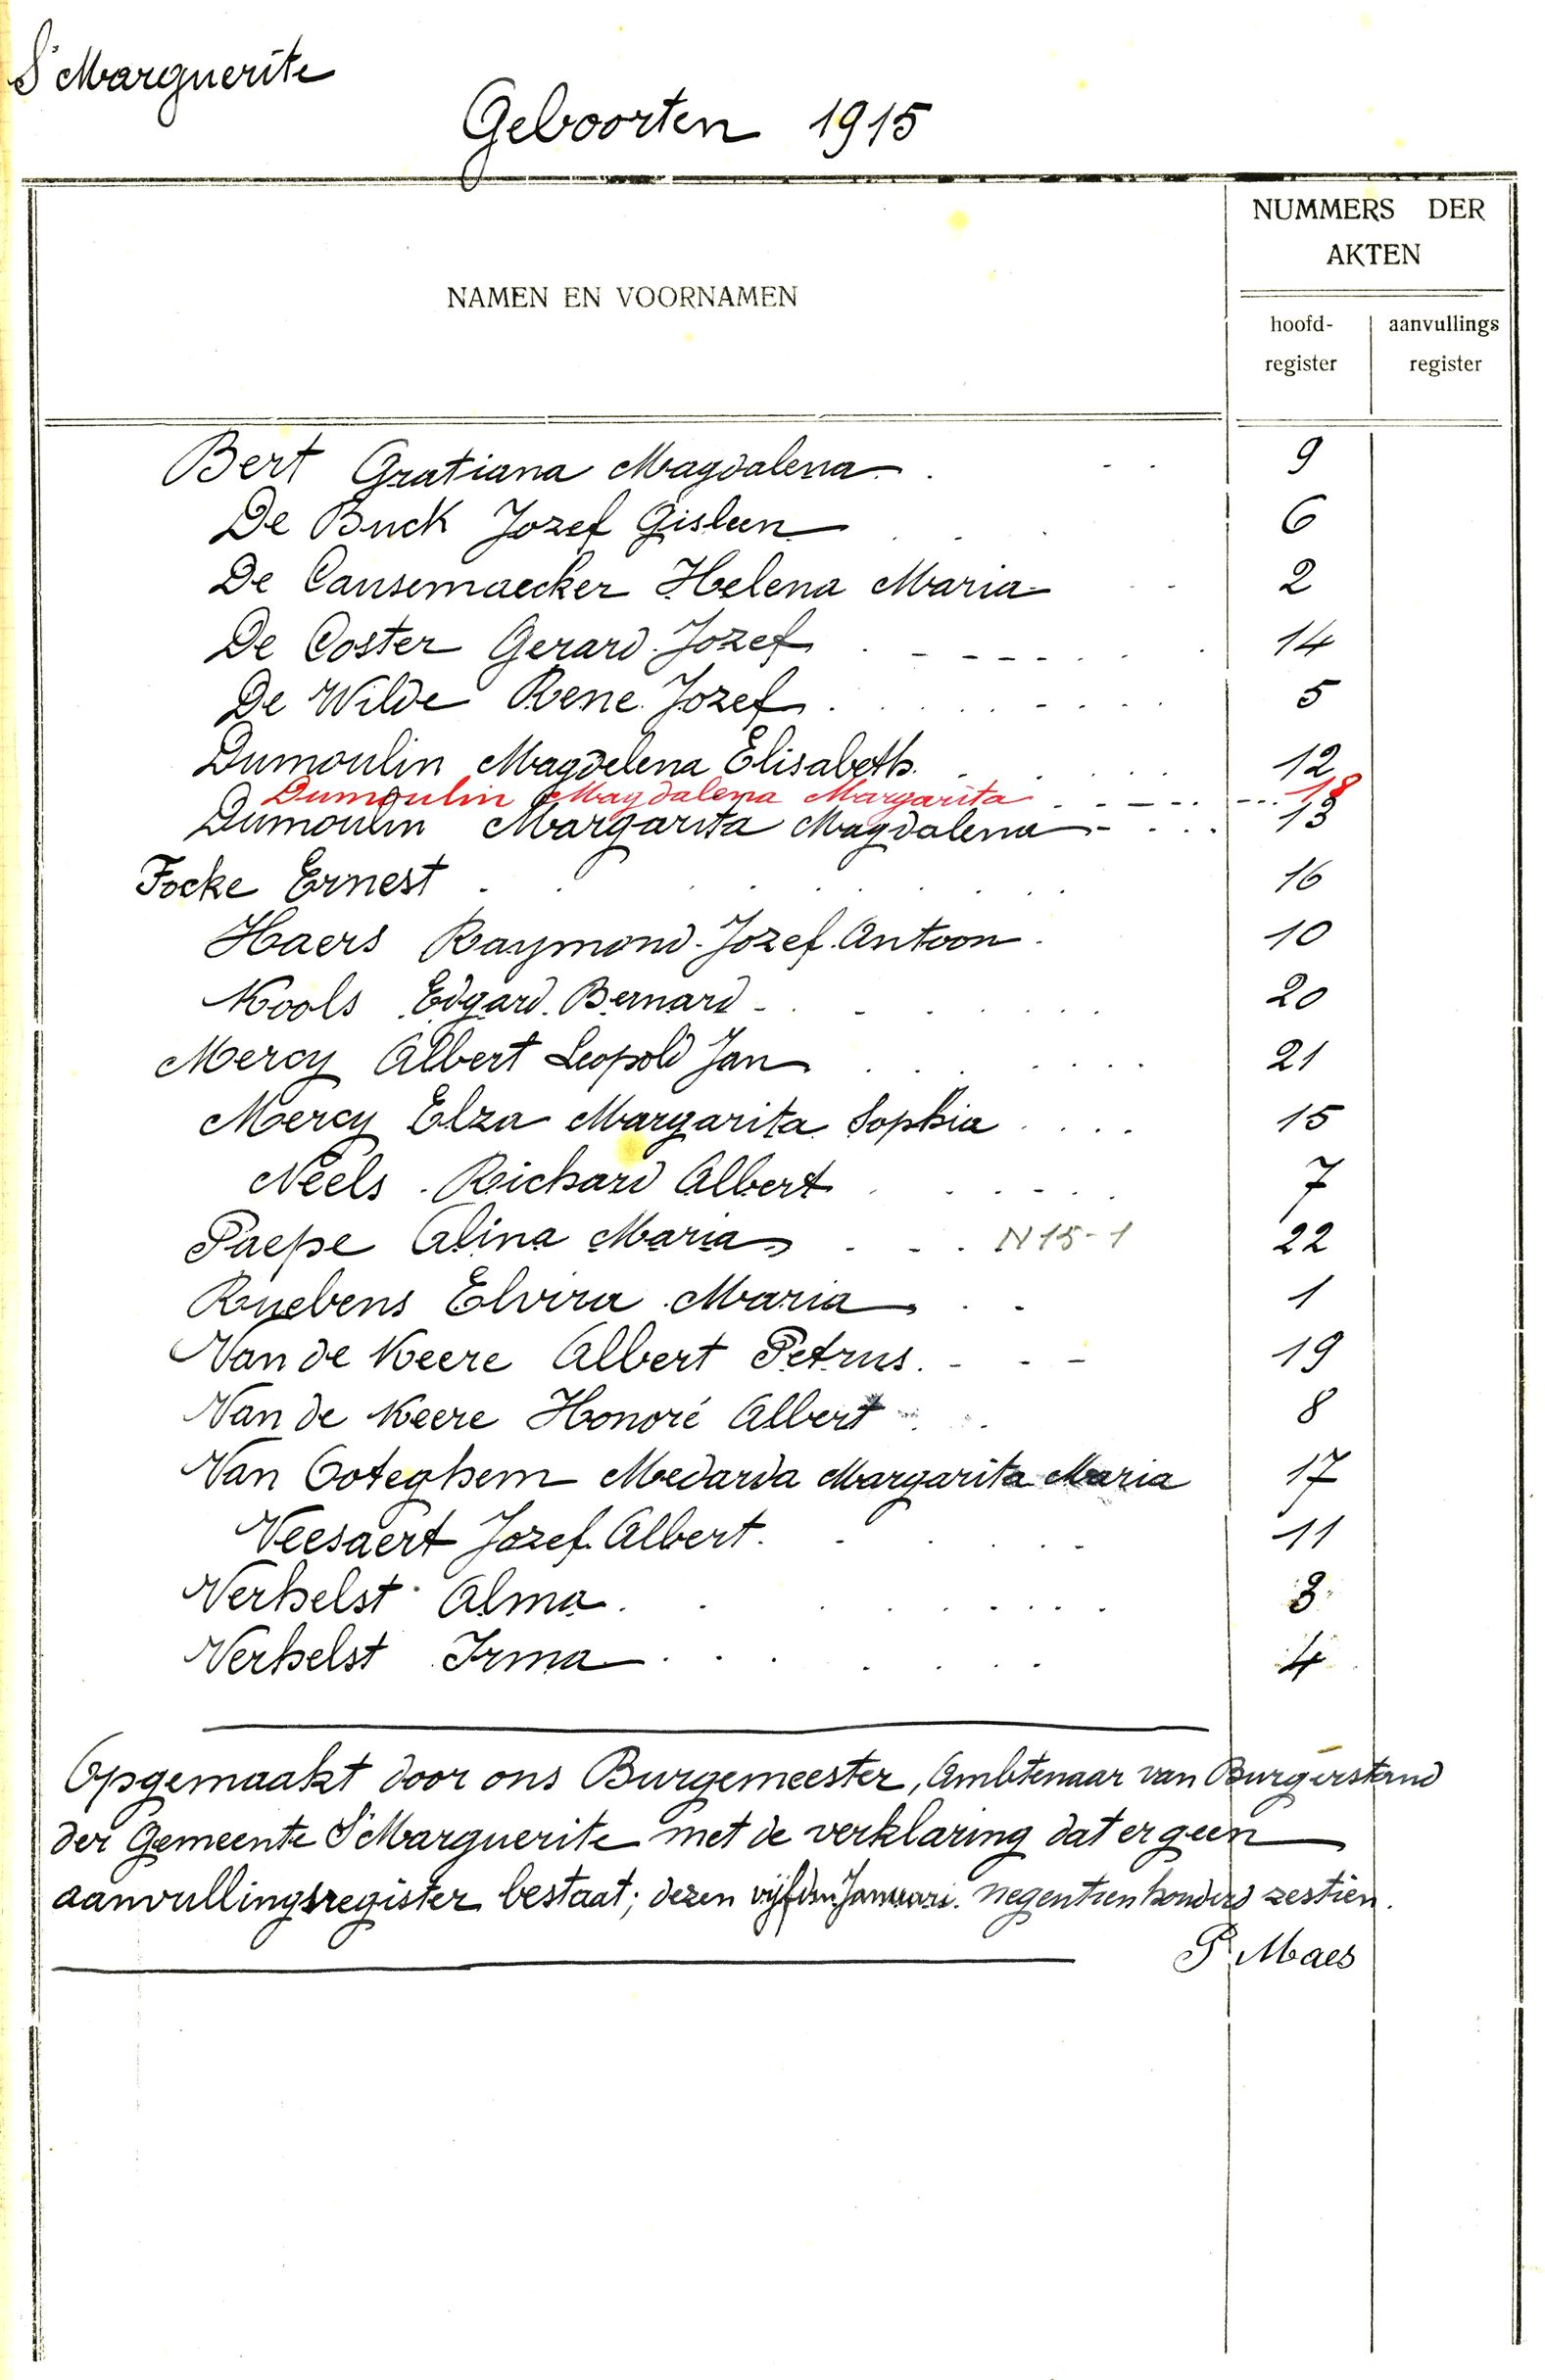 St Marguerite
Geboorten 1915
NAMEN EN VOORNAMEN
NUMMERS DER
AKTEN
hoofd-
register
aanvullings
register
Bert Gratiana Magdalena . - - 9
De Buck Jozef Gisleen . . . 6
De Causemaecker Helena Maria - - 2
De Coster Gerard Jozef . - - - - . . . . 14
De Wilde Rene Jozef . . . . . . . . 5
Dumoulin Magdelena Elisabeth . . . . . 12
Dumoulin Magdalena Margarita . . - - . . - . . . 18
Dumoulin Margarita Magdalena - . . . 13
Focke Ernest . . . . . . . . 16
Haers Raymond Jozef Antoon . 10
Kools Edgard Bernard - . . . . . . 20
Mercy Albert Leopold Jan . . . . . . . 21
Mercy Elza Margarita Sophia . . . . 15
Neels Richard Albert . . . . . . 7
Paepe Alina Maria . . . N 15-1 22
Ruebens Elvira Maria . . 1
Van de Keere Albert Petrus . - - - 19
Van de Keere Honoré Albert . . 8
Van Ooteghem Medarda Margarita Maria 17
Veesaert Jozef Albert . . . . . . 11
Verhelst Alma . . . . . . . . 3
Verhelst Irma . . . . . . . 4
Opgemaakt door ons Burgemeester, Ambtenaar van Burgerstand
der Gemeente St Marguerite met de verklaring dat er geen
aanvullingsregister bestaat; dezen vijfden Januari negentienhonderd zestien.
P. Maes